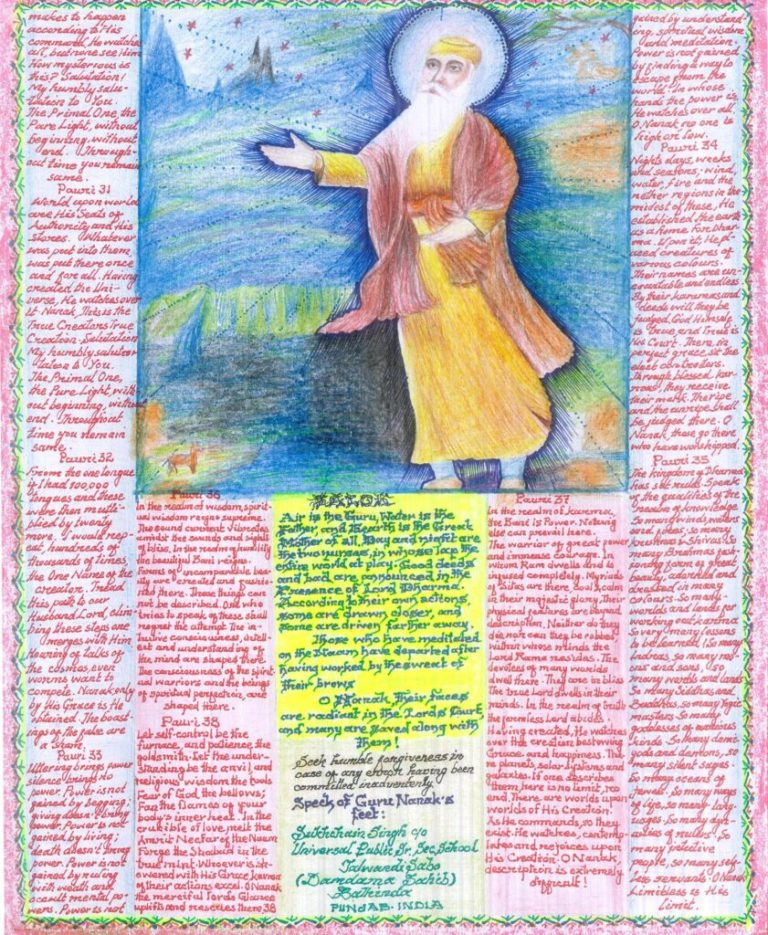 makes to happen
according to His
command. He watches
all, but none see Him
How mysterious is
this? Salutation!
My humbly salu-
tation to You.
The Primal One, the
Pure Light, without
beginning, without
end. Through-
out time you remain
same.
Pauri 31
World upon world
are His Seats of
Authority and His
stores. Whatever
was put into them,
was put there once
and for all. Having
created the Uni-
verse, He watches over
it. Nanak, This is the
True Creators True
Creation. Salutation
My humbly salutar
tation to You.
The Primal One,
the Pure Light, with
out beginning, without
end. Throughout
time you remain
same.
Pauri 32
From the one tongue
if I had 100,000
tongues and these
were then multi-
plied by twenty
more. I would rep-
eat, hundreds of
thousands of times,
the One Name of the
creation. Tread
this path to our
Husband Lord, clim-
bing these steps one
merges with Him
Hearing of talks of
the cosmos, even
worms want to
compete. Nanak, only
by His Grace is He
obtained. The boast-
ings of the false are
a sham.
Pauri 33
Uttering brings power
silence brings no
power. Power is not
gained by begging;
giving doesn't bring
power. Power is not
gained by living;
death doesn't bring
power. Power is not
gained by ruling
with wealth and
occult mental po-
wers. Power is not
gained by understand-
ing, spiritual wisdom
and meditation.
Power is not gained
by finding a way to
escape from the
world. In whose
hand the power is
He watches over all.
O Nanak, no one is
high or low.
Pauri 34
Nights, days, weeks
and seasons; wind,
water, fire and the
nether regions in the
midest of these, He
established the earth
as a home for Dhar-
ma. Upon it, He pl-
aced creatures of
various colours.
Their names are un-
countable and endless.
By their karma and
deeds will they be
judged. God Himself
is True and True is
His Court. There, in
perfect grace, sit the
elect
Through blessed, kar-
mas, they receive
their mark. The ripe
and the unripe shall
be judged there. O
Nanak, those go there
who have worshipped.
Pauri 35
The kingdom of Dharma
has six rules. Speak
of the qualities of the
realm of knowledge.
So many winds, waters
and fires, so many
Krishnas & Shivas. So
many Brahmas fas-
ioning forms of great
beauty, adorned and
dressed in many
colours. So many
worlds and lands for
working out karma
So very many lessons
to be learned. So many
Indras, so many mo-
ons and suns, so
many worlds and lands
So many Siddhas and
Buddhas, so many Yogic
masters. So many
goddesses of various
kinds. So many demi-
gods and demons, so
many silent sages.
So many oceans of
jewels. So many ways
of life, so many lang-
uages. So many dyn-
asties of rulers. So
many intuitive
people, so many sel-
less servants. O Nanak
Limitless is His
Limit.
Pauri 36
In the realm of wisdom, spirit-
ual wisdom reigns supreme.
The sound current vibrates
amidst the sounds and sights
of bliss. In the realm of humility
the beautiful Bani reigns.
Forms of uncomparable bea-
uty are created and fashio-
ned there. These things can
not be described. One who
tries to speak of these, shall
regret the attempt. The in-
tuitive consciousness, intell-
ect and understanding of
the mind are shaped there.
The consciousness of the spirit-
ual warriors and the beings
of spiritual perfection, are
shaped there.
Pauri 38
Let self-control be the
furnace, and patience the
goldsmith. Let the under-
standing be the anvil and
religious wisdom the tools
Fear of God the bellows;
Fan the flames of your
body's inner heat. In the
crucible of love, melt the
Amrit Nectar of the Naam
Forge the Shabad in the
true mint. Whoever is sh-
owered with His Grace, karma
of their actions excel. O Nanak
the merciful lords Glance
uplifts and reserves There. 38
SALOK
Air is the Guru, Water is the
Father, and Earth is the Great
Mother of all. Day and night are
the two nurses, in whose lap the
entire world at play. Good deeds
and bad, are announced in the
Presence of Lord Dharma.
According to their own actions,
some are drawn closer, and
some are driven farther away.
Those who have meditated
on the Naam have departed after
having worked by the sweet of
their brows
O Nanak, their faces
are radiant in the Lords Court,
and many are saved along with
them!
Seek humble forgiveness in
case of any having been
committed inadvertently.
Speck of Guru Nanak's
feet:
Sukhchain Singh c/o
Universal Public Sr. Sec. School
Talwandi Sabo
(Damdama Sahib)
Bathinda
PUNJAB. INDIA
Pauri 37
In the realm of karma,
the Bani is Power. Nothing
else can prevail here.
The warrior of great power
and immense courage. In
whom Ram dwells and is
infused completely. Myriads
of Sitas are there, Cool & calm
in their majestic glory, Their
physical features are beyond
description. Neither do they
die, nor can they be robbed
within whose minds the
Lord Rama resides. The
devitees of many worlds
dwell there. They are in bliss
The true Lord dwells in their
minds. In the realm of truth
the formless Lord abides
Having created, He watches
over this creation bestowing
Grace, and happiness. There
're planets, solar systems and
galaxies. If one describes
them, here is no limit, no
end. There, are worlds upon
worlds of His Creation.
As He commands, so they
exist. He watches, contemp-
lates and rejoices upon
His Creation. O Nanak,
description is extremely
difficult!